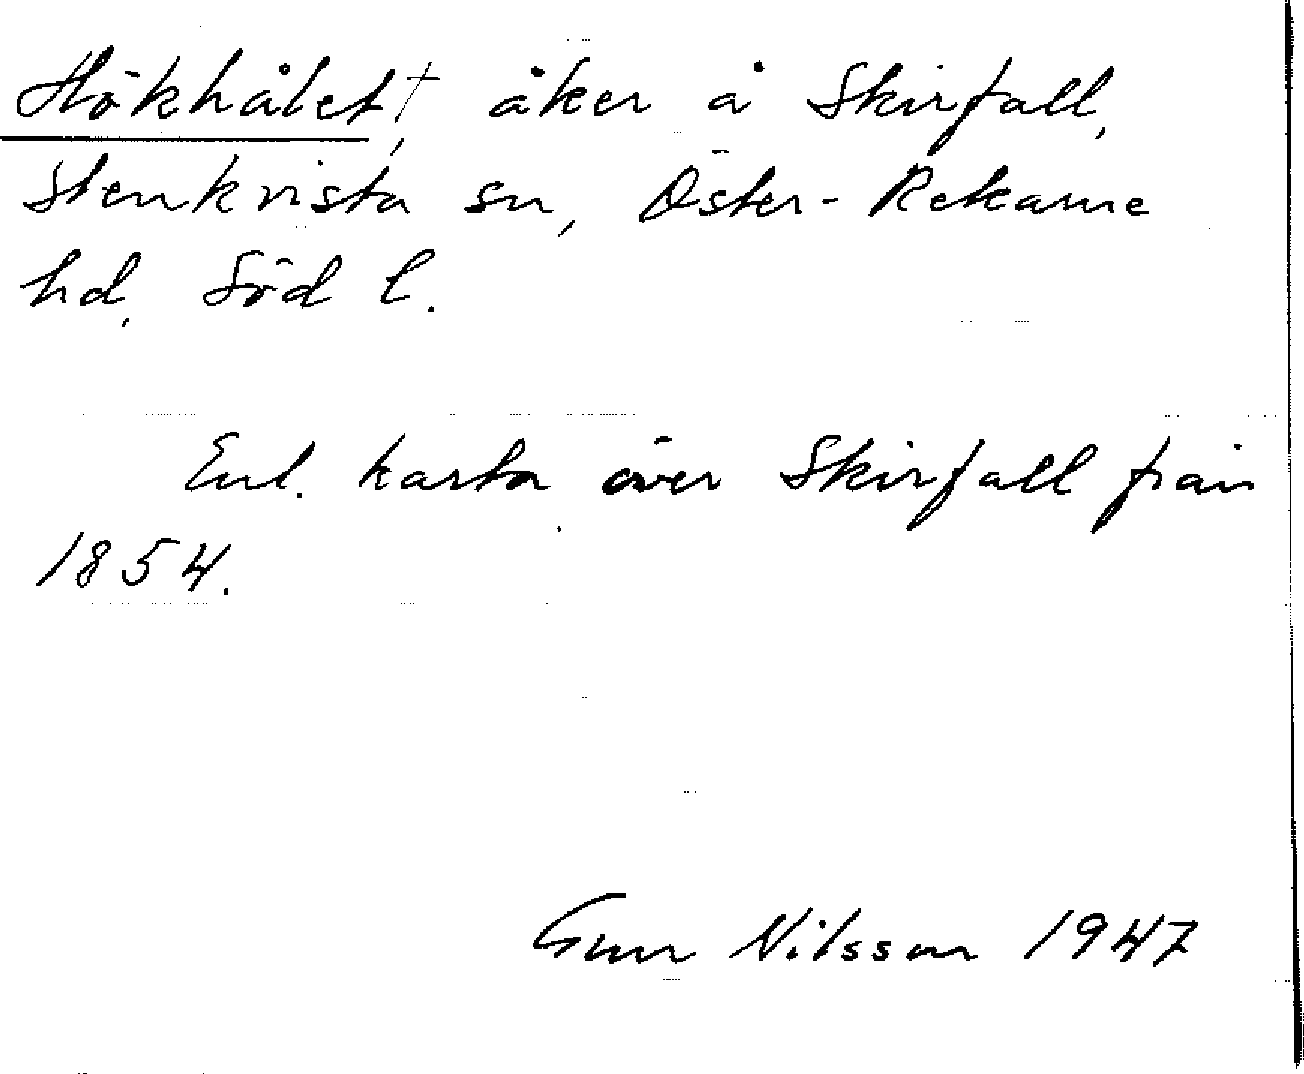 Hökhålet†, åker å Skirfall,
Stenkvista sn, Öster-Rekarne
hd, Söd l.
Enl. karta över Skirfall från
1854.
Gun Nilsson 1947